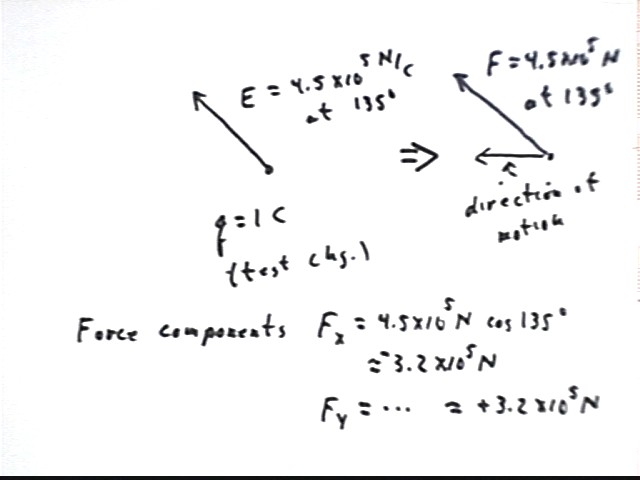 E = 4.5 x 10^5 N/C
at 135°
F = 4.5 x 10^5 N
at 135°
⇒
direction of
motion
q = 1 C
(test chg.)
Force components F_x = 4.5 x 10^5 N cos 135°
= -3.2 x 10^5 N
F_y = ... = +3.2 x 10^5 N